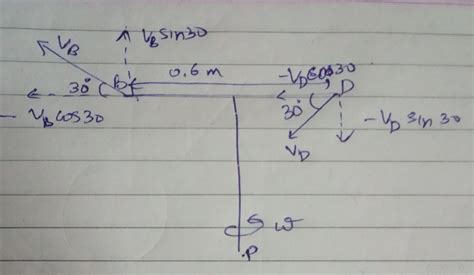 V_B sin30
V_B
0.6 m
-V_D cos30
B
D
30°
30°
- V_B cos30
- V_D sin 30
V_D
ω
.P